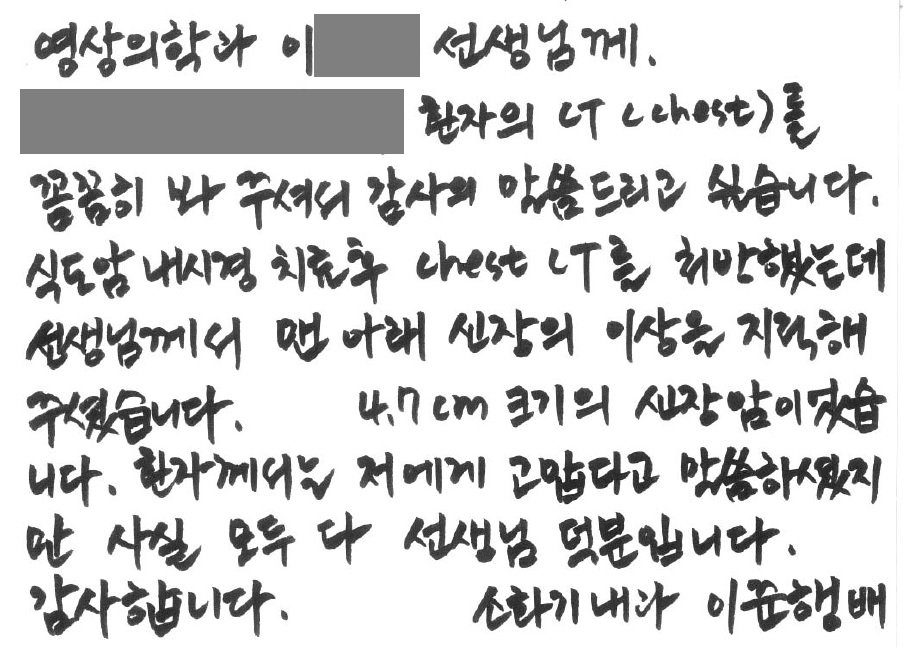 영상의학과 이 선생님께.
환자의 CT (chest)를
꼼꼼히 봐 주셔서 감사의 말씀드리고 싶습니다.
식도암 내시경 치료후 chest CT를 처방했는데
선생님께서 맨 아래 신장의 이상을 지적해
주셨습니다. 4.7 cm 크기의 신장암이었습
니다. 환자께서는 저에게 고맙다고 말씀하셨지
만 사실 모두 다 선생님 덕분입니다.
감사합니다. 소화기내과 이준행 배